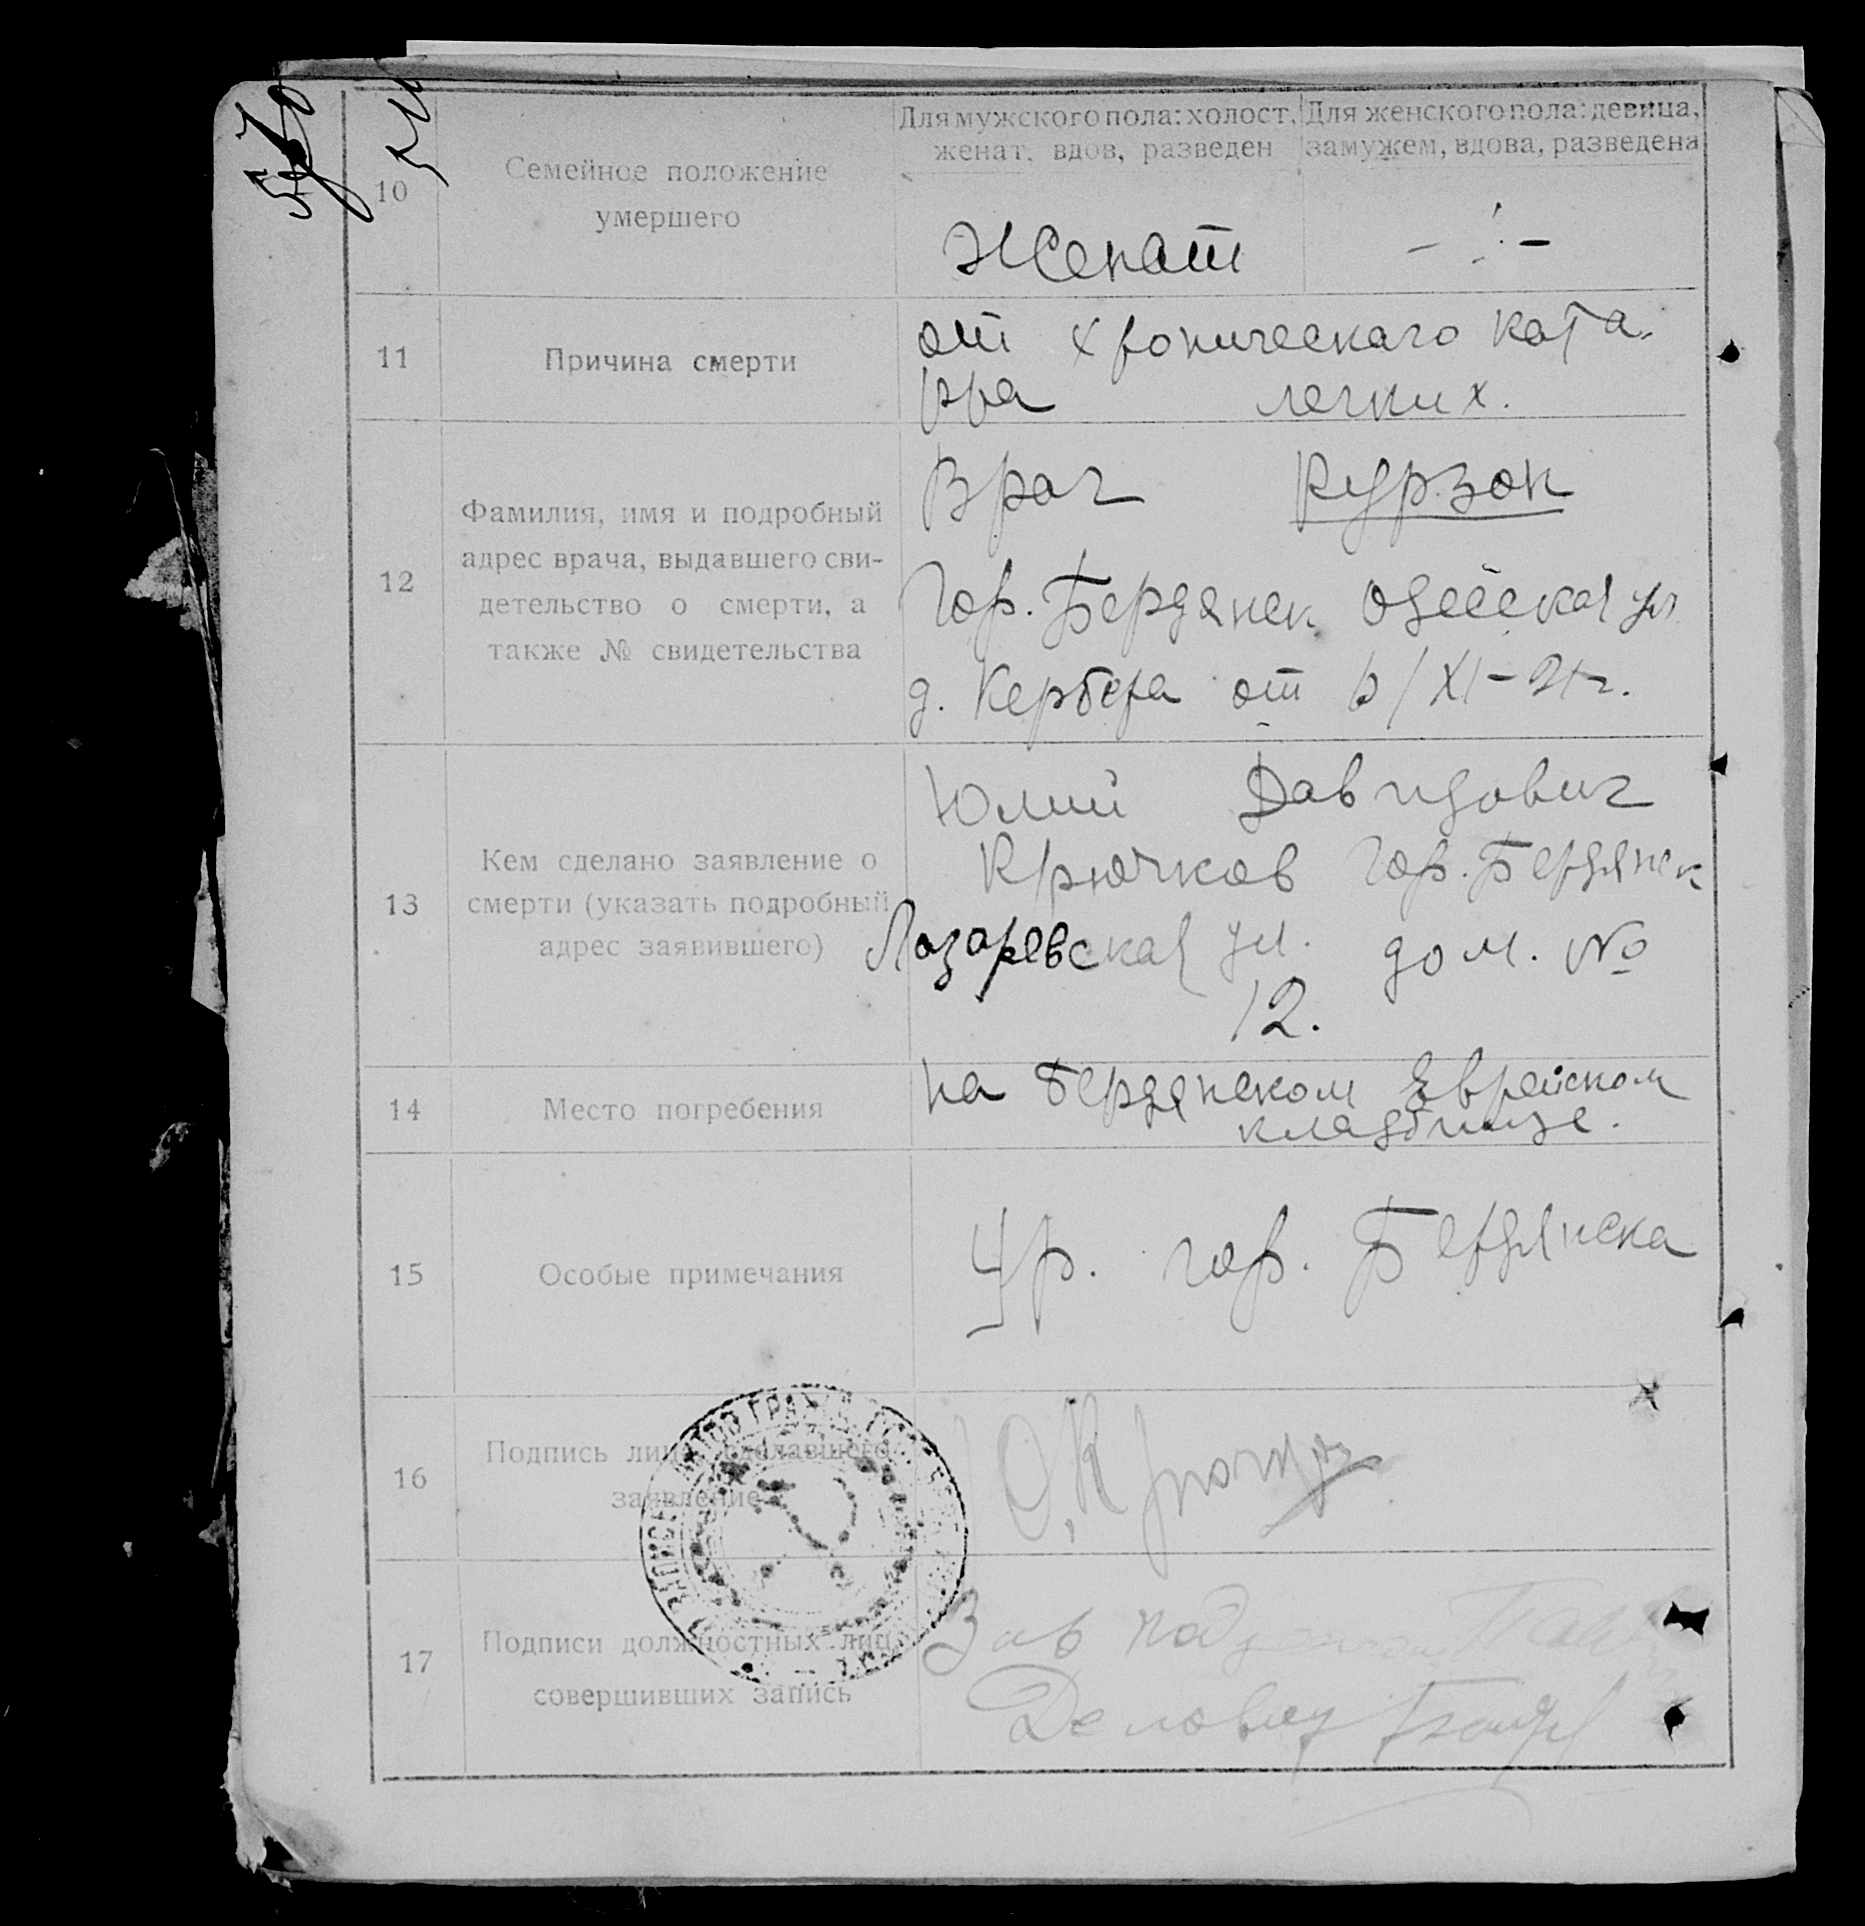 Для мужского пола: холост, женат, вдов, разведен
Для женского пола: девица, замужем, вдова, разведена
10
Семейное положение
умершего
Женат
11
Причина смерти
от хроническаго ката-
рра легких.
12
Фамилия, имя и подробный
адрес врача, выдавшего сви-
детельство о смерти, а
также № свидетельства
Врач Курзон
Гор. Бердянск Одесская ул
д. Кербера от 6/XI-21г.
13
Кем сделано заявление о
смерти (указать подробный
адрес заявившего)
Юлий Давидович
Крючков Гор. Бердянск
Лазаревская ул. дом. №
12.
14
Место погребения
на Бердянском Еврейском
кладбище.
15
Особые примечания
Ур. гор. Бердянска
16
Подпись лица, сделавшего
заявление
17
Подписи должностных лиц,
совершивших запись
Зав